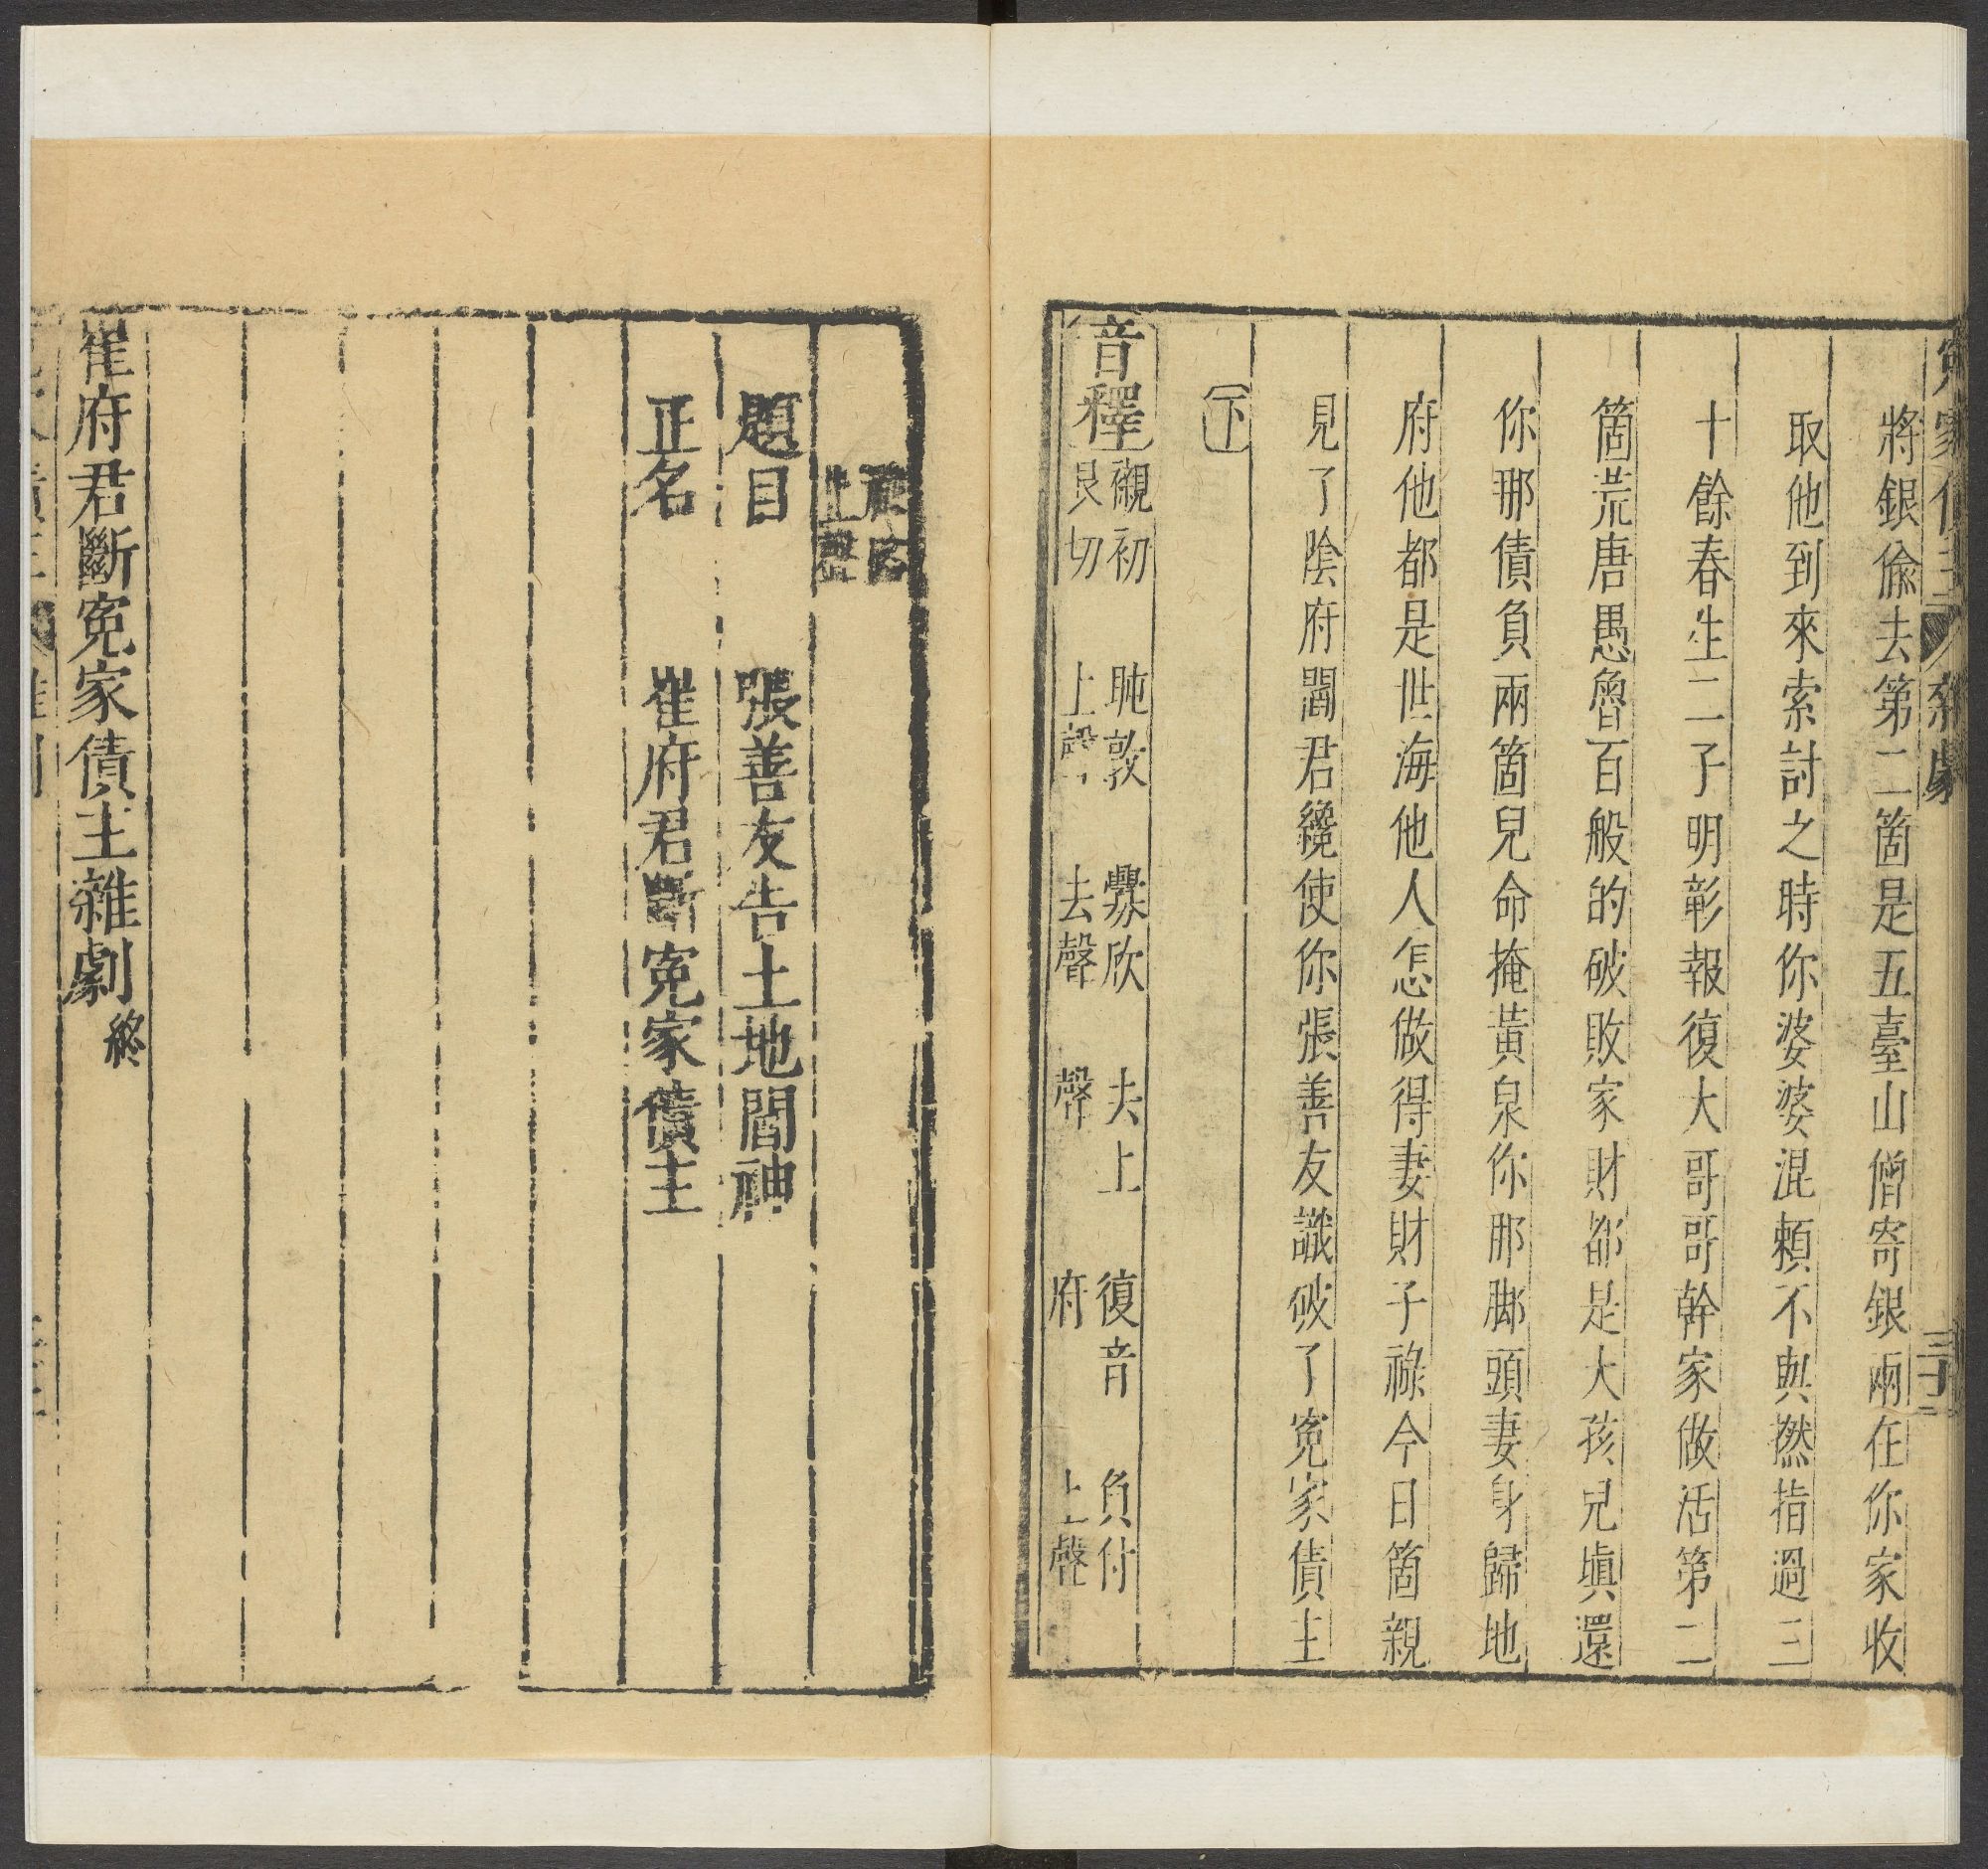 冤家債主 雜劇 三十二
將銀偸去第二箇是五臺山僧寄銀兩在你家收
取他到來索討之時你婆婆混賴不與撚指過三
十餘春生二子明彰報復大哥哥幹家做活第二
箇荒唐愚魯百般的破敗家財都是大孩兒塡還
你那債負兩箇兒命掩黃泉你那脚頭妻身歸地
府他都是世海他人怎做得妻財子祿今日箇親
見了陰府閻君纔使你張善友識破了冤家債主
下
音釋
襯初艮切 盹敦上聲 釁欣去聲 夫上聲 復音府 負付上聲
上聲
題目 張善友告土地閻神
正名 崔府君斷冤家債主
崔府君斷冤家債主雜劇終